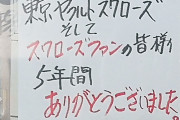 東京ヤクルトスワローズ
そして
スワローズファンの皆様
5年間
ありがとうございました。